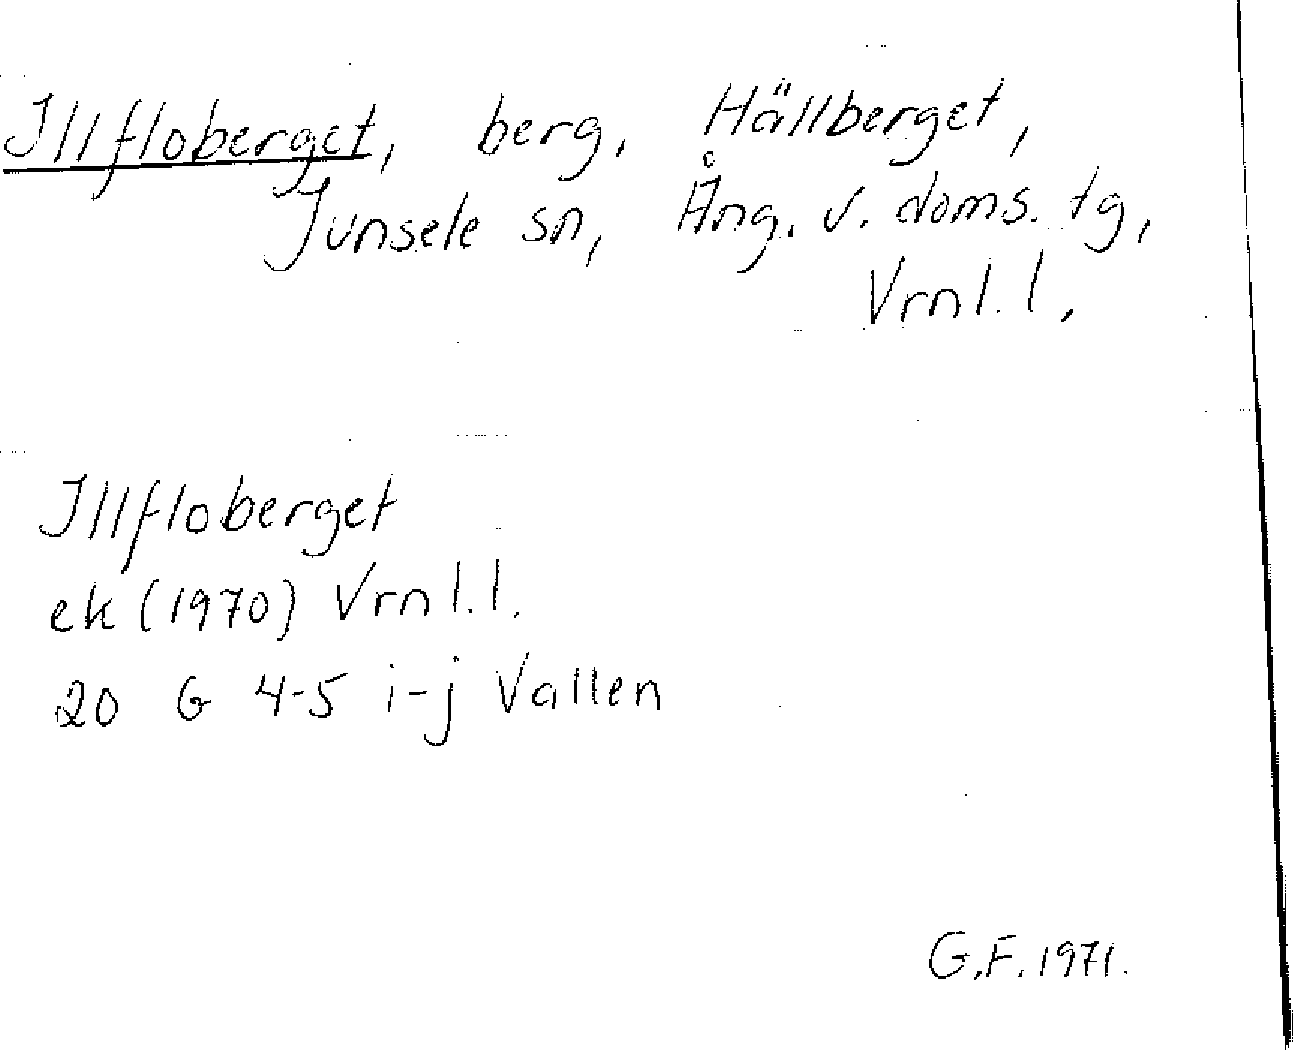 Illfloberget, berg, Hällberget,
Junsele sn, Ång. v. doms. tg,
Vrnl. l,
Illfloberget
ek (1970) Vrnl. l.
20 G 4-5 i-j Vallen
G.F. 1971.